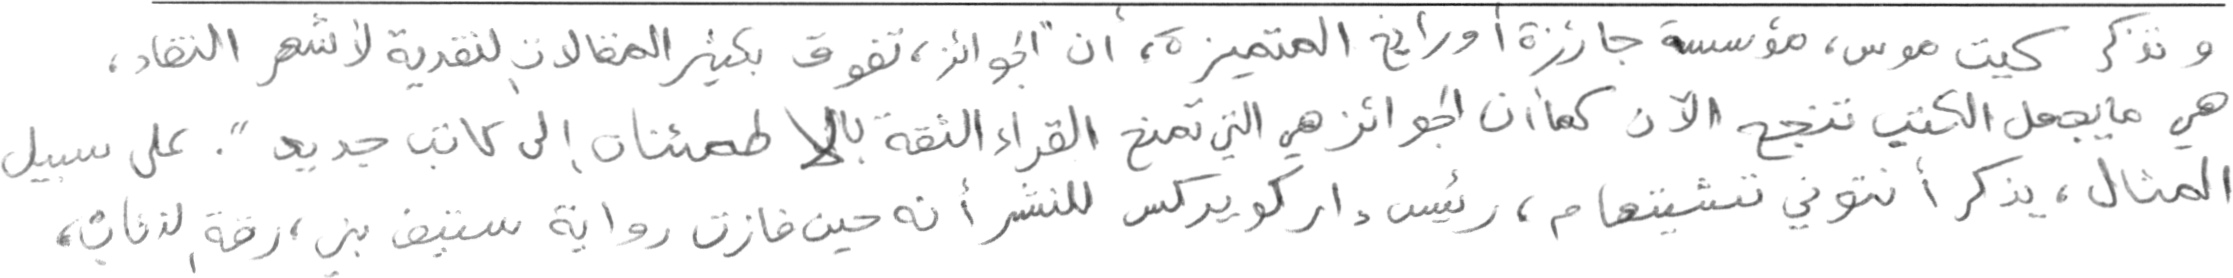 وتذكر كيت موس، مؤسسة جائزة أورانج المتميزة، أن "الجوائز، تفوق بكثير المقالات النقدية لأشهر النقاد،
هي ما يجعل الكتب تنجح الآن كما أن الجوائز هي التي تمنح القراء الثقة بالاطمئنان إلى كاتب جديد". على سبيل
المثال، يذكر أنتوني تشيتهام، رئيس دار كويركس للنشر أنه حين فازت رواية ستيف بني، رقة الذئاب،